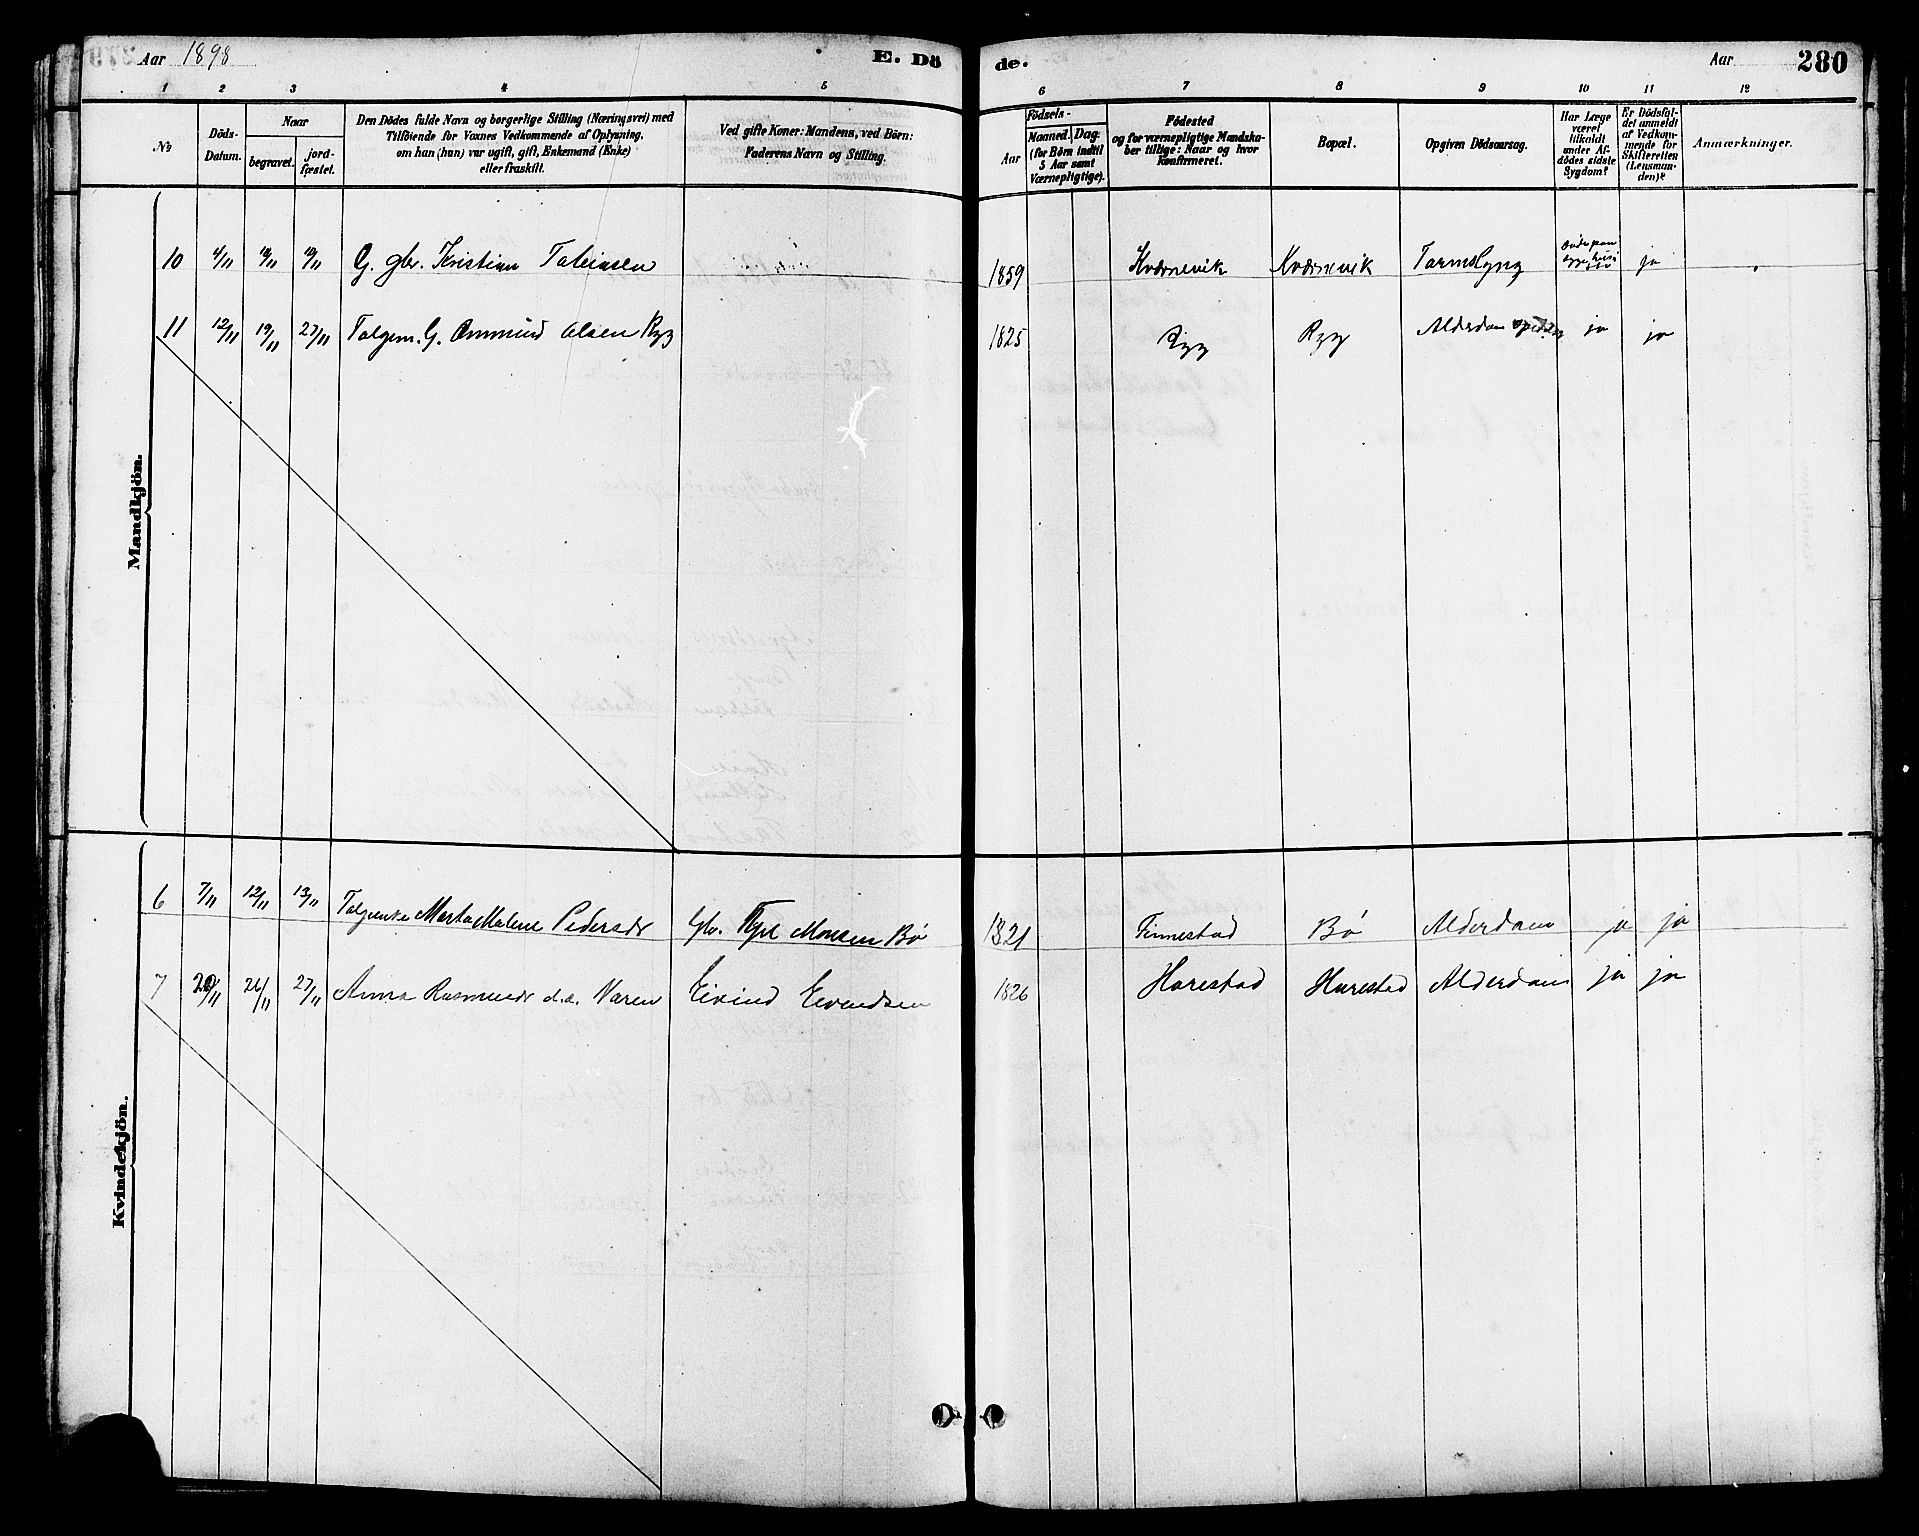 Aar 1898 E. Dö
de. Aar 280
1 2 3 4 5
6 7 8 9 10 11 12
No
Döds-
Datum.
Naar
begravet.
jord-
fæstet.
Den Dödes fulde Navn og borgerlige Stilling (Næringsvei) med
Tilföiende for Voxnes Vedkommende af Oplysning,
om han (hun) var ugift, gift, Enkemand (Enke)
eller fraskilt.
Ved gifte Koner: Mandens, ved Börn:
Faderens Navn og Stilling.
Födsels-
Aar
Maaned. Dag.
(for Börn indtil
5 Aar samt
Værnepligtige).
Födested
og for værnepligtige Mandska-
ber tillige: Naar og hvor
konfirmeret.
Bopæl.
Opgiven Dödsaarsag.
Har Læge
været
tilkaldt
under Af-
dödes sidste
Sygdom?
Er Dödsfal-
det anmeldt
af Vedkom-
mende for
Skifteretten
(Lensman-
den)?
Anmærkninger.
Mandkjön.
10 4/11 10/11 10/11 G. gbr. Kristian Tobiasen 1859 Kværnevik Kværnevik Tarmslyng ja
11 12/11 19/11 27/11 Folgem. G. Ommund Olsen Ryg 1825 Ryg Ryg Alderdom ja ja
Kvindekjön.
6 7/11 12/11 13/11 Folgeenke Marta Malene Pedersdr Gbr. Kjel Monsen Bø 1821 Finnestad Bø Alderdom ja ja
7 20/11 26/11 27/11 Anna Rasmusdr d.æ. Varen Eivind Eivindsen 1826 Harestad Harestad Alderdom ja ja